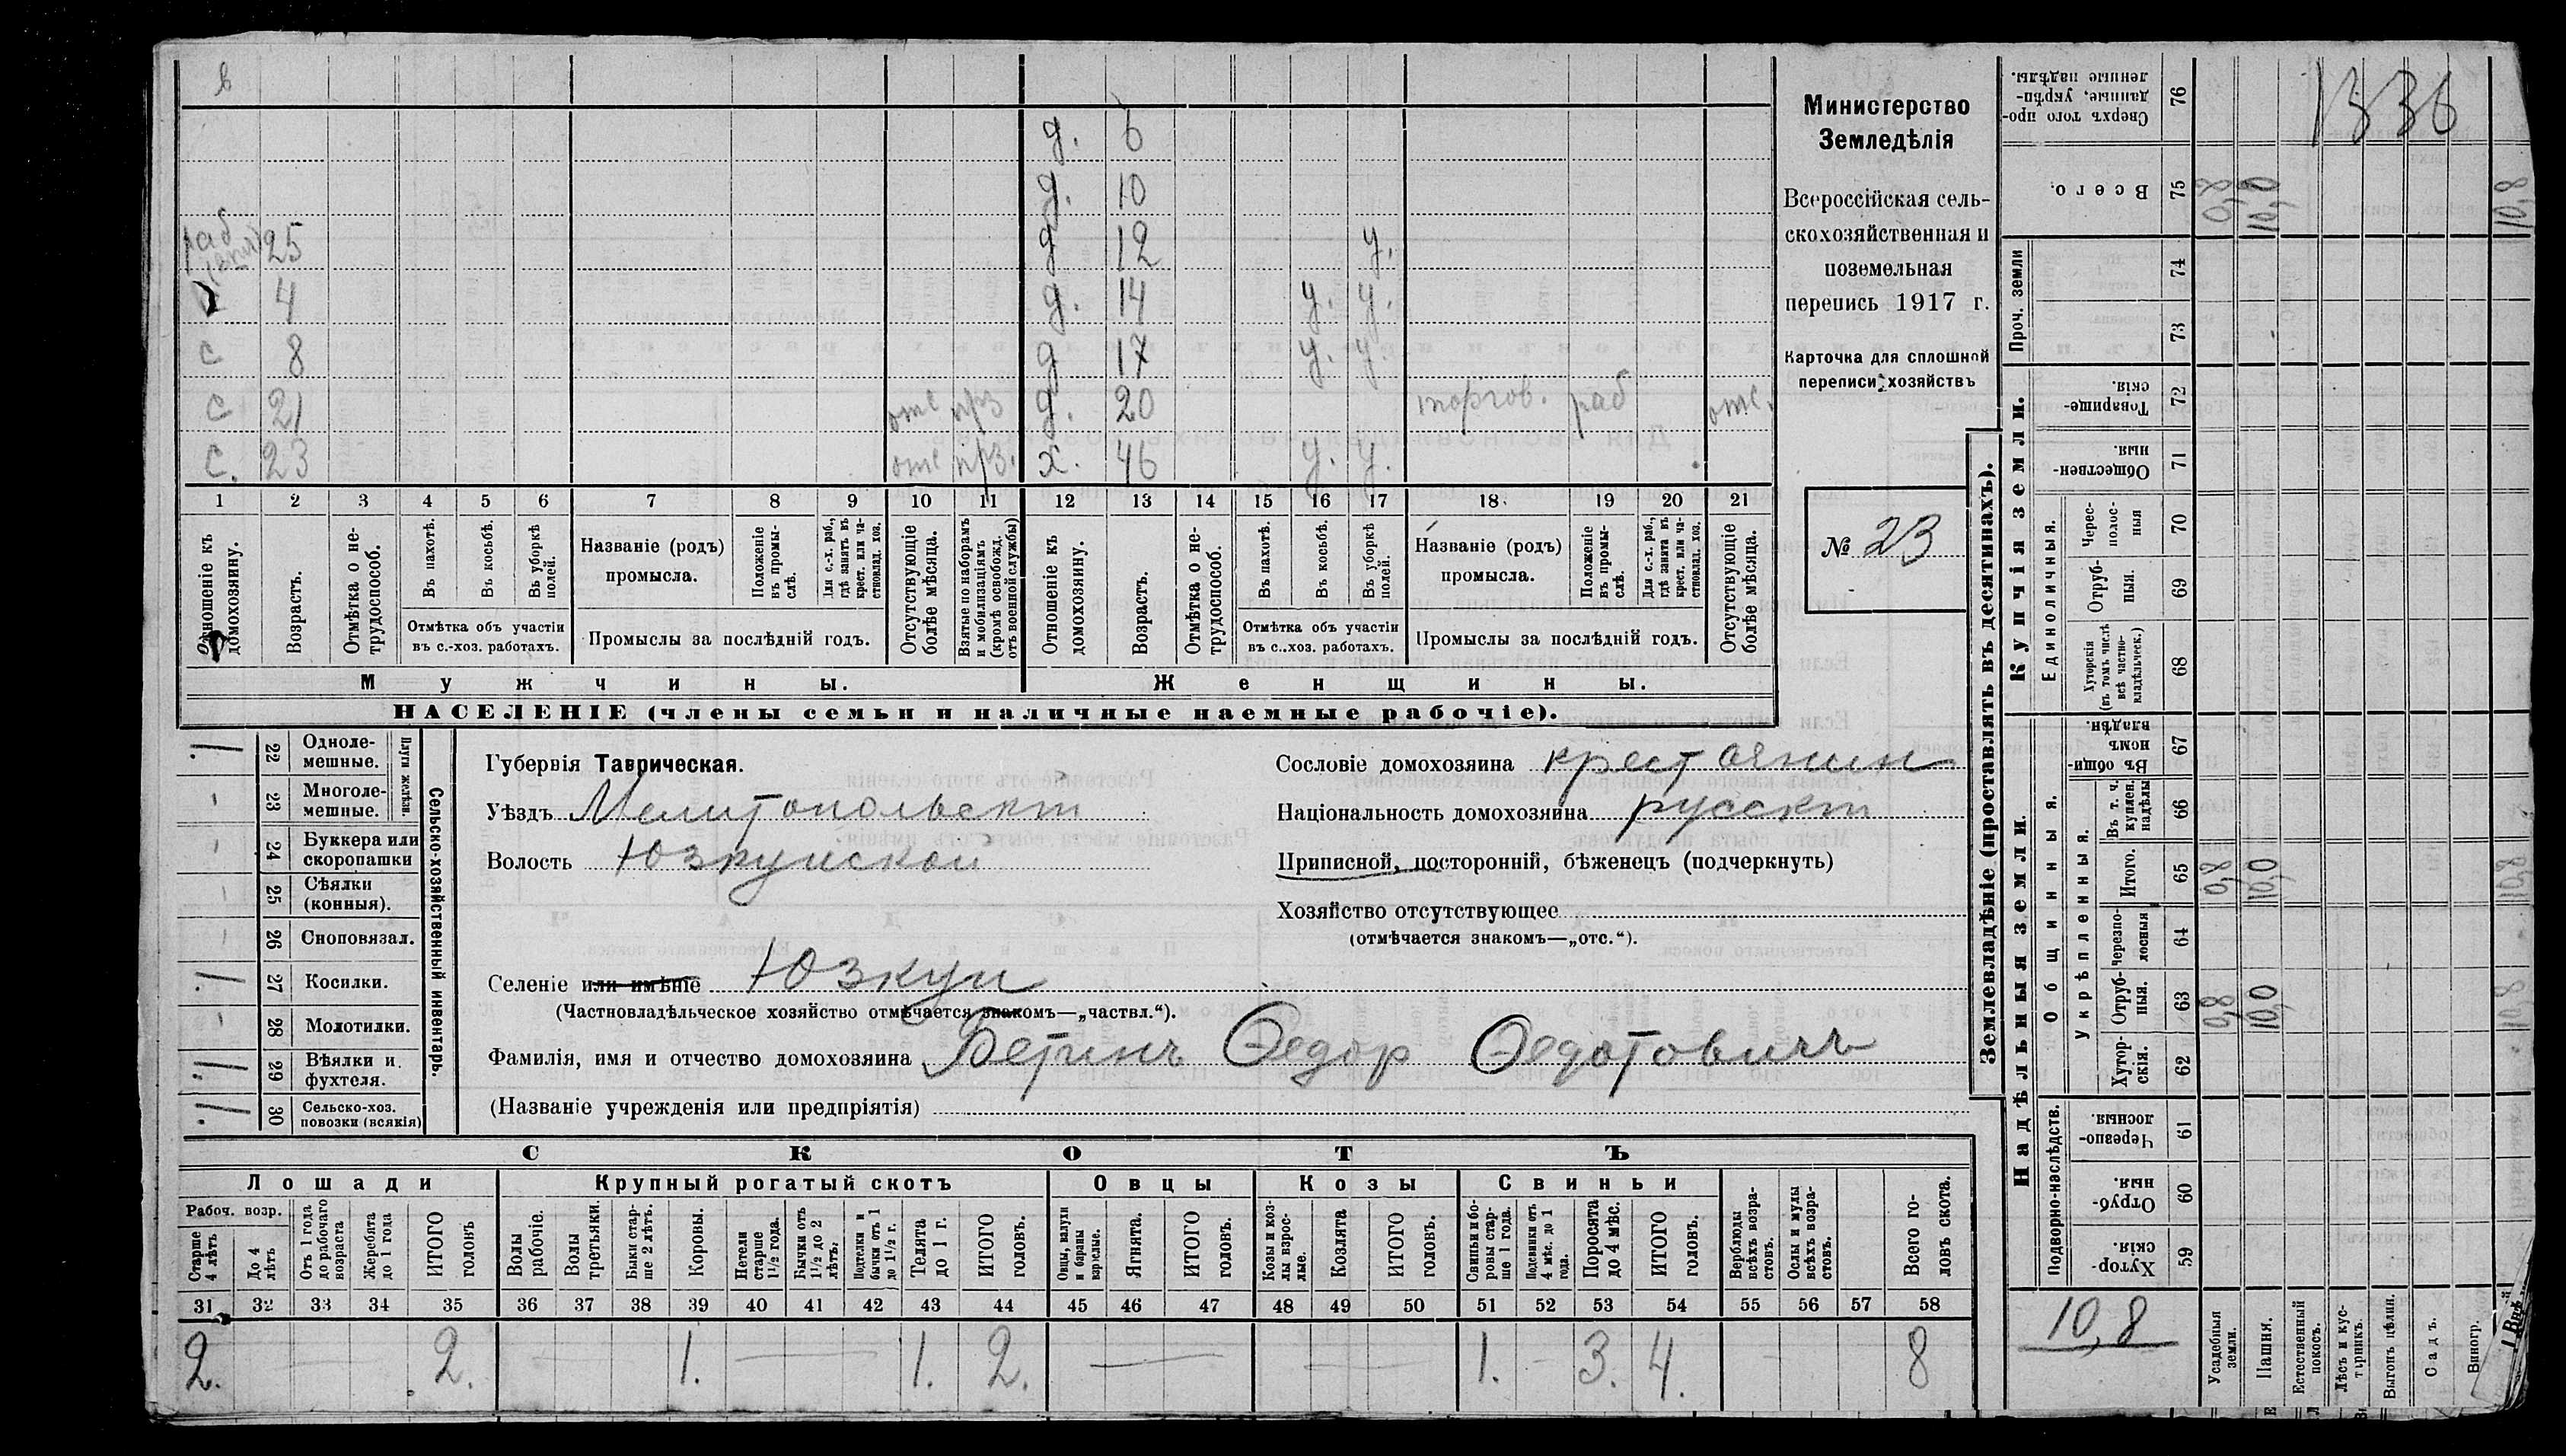 д. 6
д. 10
раб 25 д 12 у.
4 д. 14 у. у.
с 8 д 17 у. у.
с 21 отс прз д. 20 торгов. раб отс.
с. 23 отс прз. х. 46 у. у.
1 2 3 4 5 6 7 8 9 10 11 12 13 14 15 16 17 18. 19 20 21
Отношеніе къ домохозяину.
Возрастъ.
Отмѣтка о не-
трудоспособ.
Въ пахотѣ.
Въ косьбѣ.
Въ уборкѣ
полей.
Отмѣтка объ участіи
въ с.-хоз. работахъ.
Названіе (родъ)
промысла.
Положеніе
въ промы-
слѣ.
Для с.-х. раб.,
гдѣ занятъ въ
крест. или ча-
стновлад. хоз.
Промыслы за послѣдній годъ.
Отсутствующіе
болѣе мѣсяца.
Взятые по наборамъ
и мобилизаціямъ
(кромѣ освобожд.
отъ военной службы)
Отношеніе къ
домохозяину.
Возрастъ.
Отмѣтка о не-
трудоспособ.
Въ пахотѣ.
Въ косьбѣ.
Въ уборкѣ
полей.
Отмѣтка объ участіи
въ с..хоз. работахъ.
Названіе (родъ)
промысла.
Положеніе
въ промы-
слѣ.
Для с.-х. раб.,
гдѣ занята въ
крест. или ча-
стновлад. хоз.
Промыслы за послѣдній годъ.
Отсутствующіе
болѣе мѣсяца.
Мужчины.
Женщины.
НАСЕЛЕНІЕ (члены семьи и наличные наемные рабочіе).
Министерство
Земледѣлія
Всероссійская сель-
скохозяйственная и
поземельная
перепись 1917 г.
Карточка для сплошной
переписи хозяйствъ
№ 23
Сельско-хозяйственный инвентарь.
Плуги желѣзн.
1 22 Однолe-
мешные.
- 23 Многоле-
мешные.
- 24 Буккера или
скоропашки
- 25 Сѣялки
(конныя).
- 26 Сноповязал.
1 27 Косилки.
- 28 Молотилки.
1 29 Вѣялки и
фухтеля.
1 30 Сельско-хоз.
повозки (всякія)
Губернія Таврическая.
Уѣздъ Мелитопольскій
Волость Юзкуйской
Сословіе домохозяина крестьянин
Національность домохозяина русскій
Приписной, посторонній, бѣженецъ (подчеркнуть)
Хозяйство отсутствующее
(отмѣчается знакомъ—„отс.“).
Селеніе или имѣніе Юзкуи
(Частновладѣльческое хозяйство отмѣчается знакомъ—„частвл.“).
Фамилія, имя и отчество домохозяина Бетинъ Ѳедор Ѳедотовичъ
(Названіе учрежденія или предпріятія)
СКОТЪ
Лошади Крупный рогатый скотъ Овцы Козы Свиньи
Рабоч. возр.
Старше
4 лѣтъ
До 4
лѣтъ
Отъ 1 года
до рабочаго
возраста
Жеребята
до 1 года
ИТОГО
головъ
Волы
рабочіе.
Волы
третьяки.
Быки стар-
ше 2 лѣтъ.
Коровы.
Нетели
старше
1½ года.
Бычки отъ
1½ до 2
лѣтъ.
Подтелки и
бычки отъ 1
до 1½ г.
Телята
до 1 г.
ИТОГО
головъ.
Овцы, валухи
и бараны
взрослые.
Ягнята.
ИТОГО
головъ.
Козы и коз-
лы взрос-
лые.
Козлята
ИТОГО
головъ.
Свиньи и бо-
ровы стар-
ше 1 года.
Подсвинки отъ
4 мѣс. до 1
года.
Поросята
до 4 мѣс.
ИТОГО
головъ.
Верблюды
всѣхъ возра-
стовъ.
Ослы и мулы
всѣхъ возра-
стовъ.
Всего го-
ловъ скота.
31 32 33 34 35 36 37 38 39 40 41 42 43 44 45 46 47 48 49 50 51 52 53 54 55 56 57 58
2. 2. 1. 1. 2. 1. - 3. 4. - 8
Землевладѣніе (проставлять въ десятинахъ).
1336
Сверхъ того про-
данные, укрѣп-
ленные надѣлы.
76
Всего. 75 0,8 10,0 10,8
Проч. земли
74
73
Купчія земли.
Товарище-
скія.
72
Обществен-
ныя.
71
Единоличныя.
Черес-
полос-
ныя
70
Отруб-
ныя.
69
Хуторскія
(въ томъ числѣ
всѣ частно-
владѣльческ.)
68
Надѣльныя земли.
Общинныя.
Въ общин-
номъ
владѣн.
67
Укрѣпленныя.
Въ т. ч.
куплен.
надѣлы
66
Итого. 65 0,8 10,0 10,8
Черезпо-
лосныя
64
Отруб-
ныя. 63 0,8 10,0 10,8
Хутор-
скія.
62
Подворно-наслѣдств.
Черезпо-
лосныя.
61
Отруб-
ныя.
60
Хутор-
скія.
59
10,8
Усадебныя
земли.
Пашня.
Естественный
покосъ.
Лѣсъ и кус-
тарникъ.
Выгонъ цѣлин.
Садъ.
Виногр.